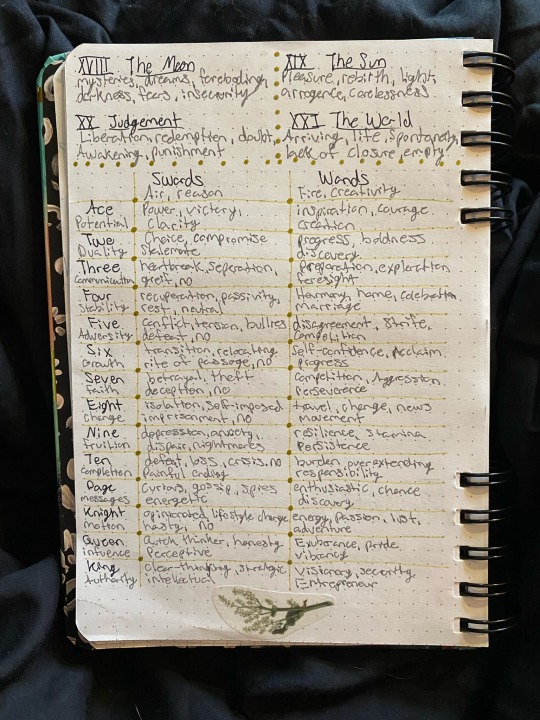 XVIII The Moon
mysteries, dreams, foreboding,
darkness, fears, insecurity
XIX The Sun
Pleasure, rebirth, light,
arrogence, carelessness
XX Judgement
Liberation, redemption, doubt,
Awakening, punishment
XXI The World
Arriving, life, spontaneity,
lack of closure, empty
Swords
Air, reason
Wands
Fire, Creativity
Ace
Potential
Power, victory,
clarity
inspiration, courage
creation
Two
Duality
Choice, compromise
stalemate
progress, boldness
discovery
Three
communication
heartbreak, seperation,
greif, no
preparation, exploration
foresight
Four
Stability
recuperation, passivity,
rest, neutral
Harmony, home, celebration
marriage
Five
Adversity
conflict, tension, bullies
defeat, no
disagreement, strife,
competition
Six
Growth
transition, relocating
rite of passage, no
self-confidence, Acclaim
progress
Seven
Faith
betrayal, theft
deception, no
competition, Aggression
perseverence
Eight
change
isolation, self-imposed
imprisonment, no
travel, change, news
movement
Nine
fruition
depression, anxiety,
dispair, nightmares
resilience, stamina
Persistence
Ten
completion
defeat, loss, crisis, no
painful ending
burden, overextending
responsibility
Page
messages
curious, gossip, spies
energetic
enthusiastic, chance
discovery
Knight
motion
opinionated, lifestyle change
hasty, no
energy, passion, lust,
adventure
Queen
influence
Quick thinker, honesty
Perceptive
Exuberance, pride
vibrancy
King
Authority
clear-thinking, strategic
intellectual
Visionary, security
Entrepreneur